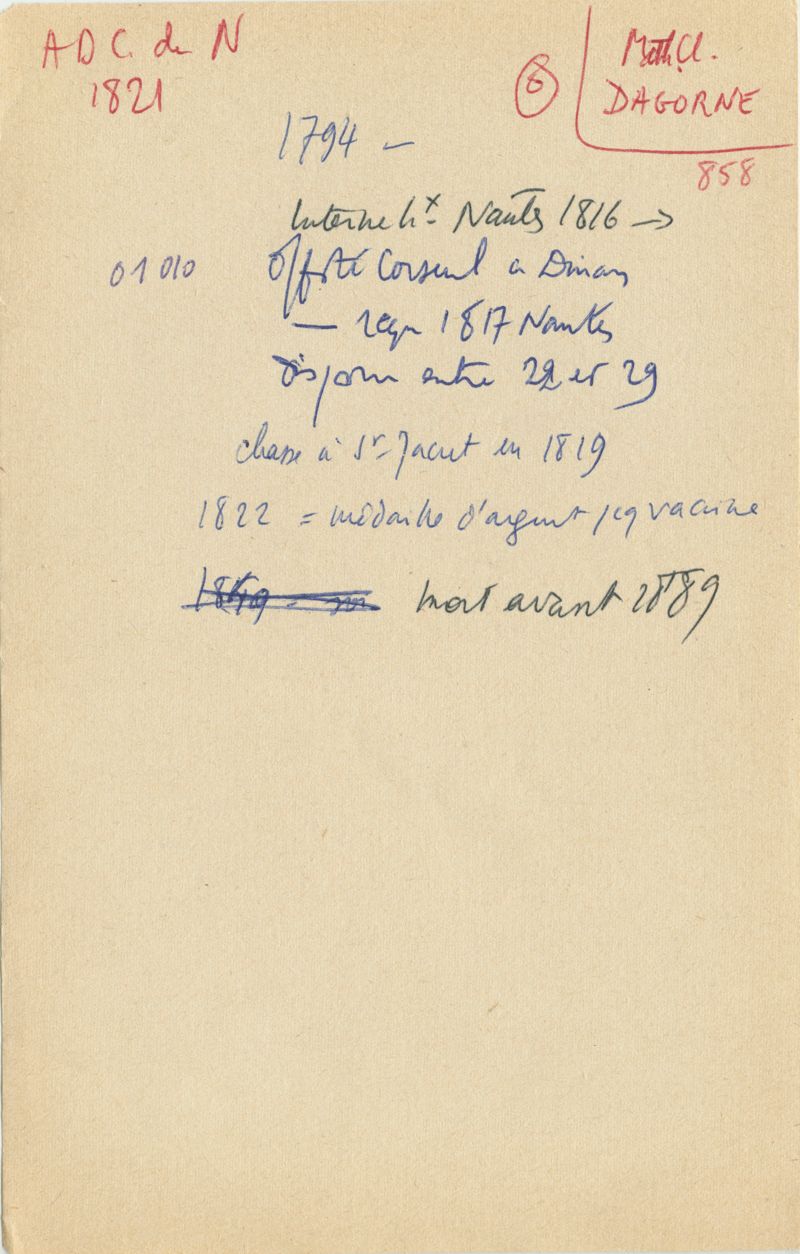 A D C. du N
1821
6
Math. Cl.
DAGORNE
858
1794 –
Interne hx Nantes 1816 →
01010
Off. Corseul à Dinan
— reçu 1817 Nantes
Disparu entre 22 et 29
chasse à St-Jacut en 1819
1822 = médaille d'argent vaccine
mort avant 1889